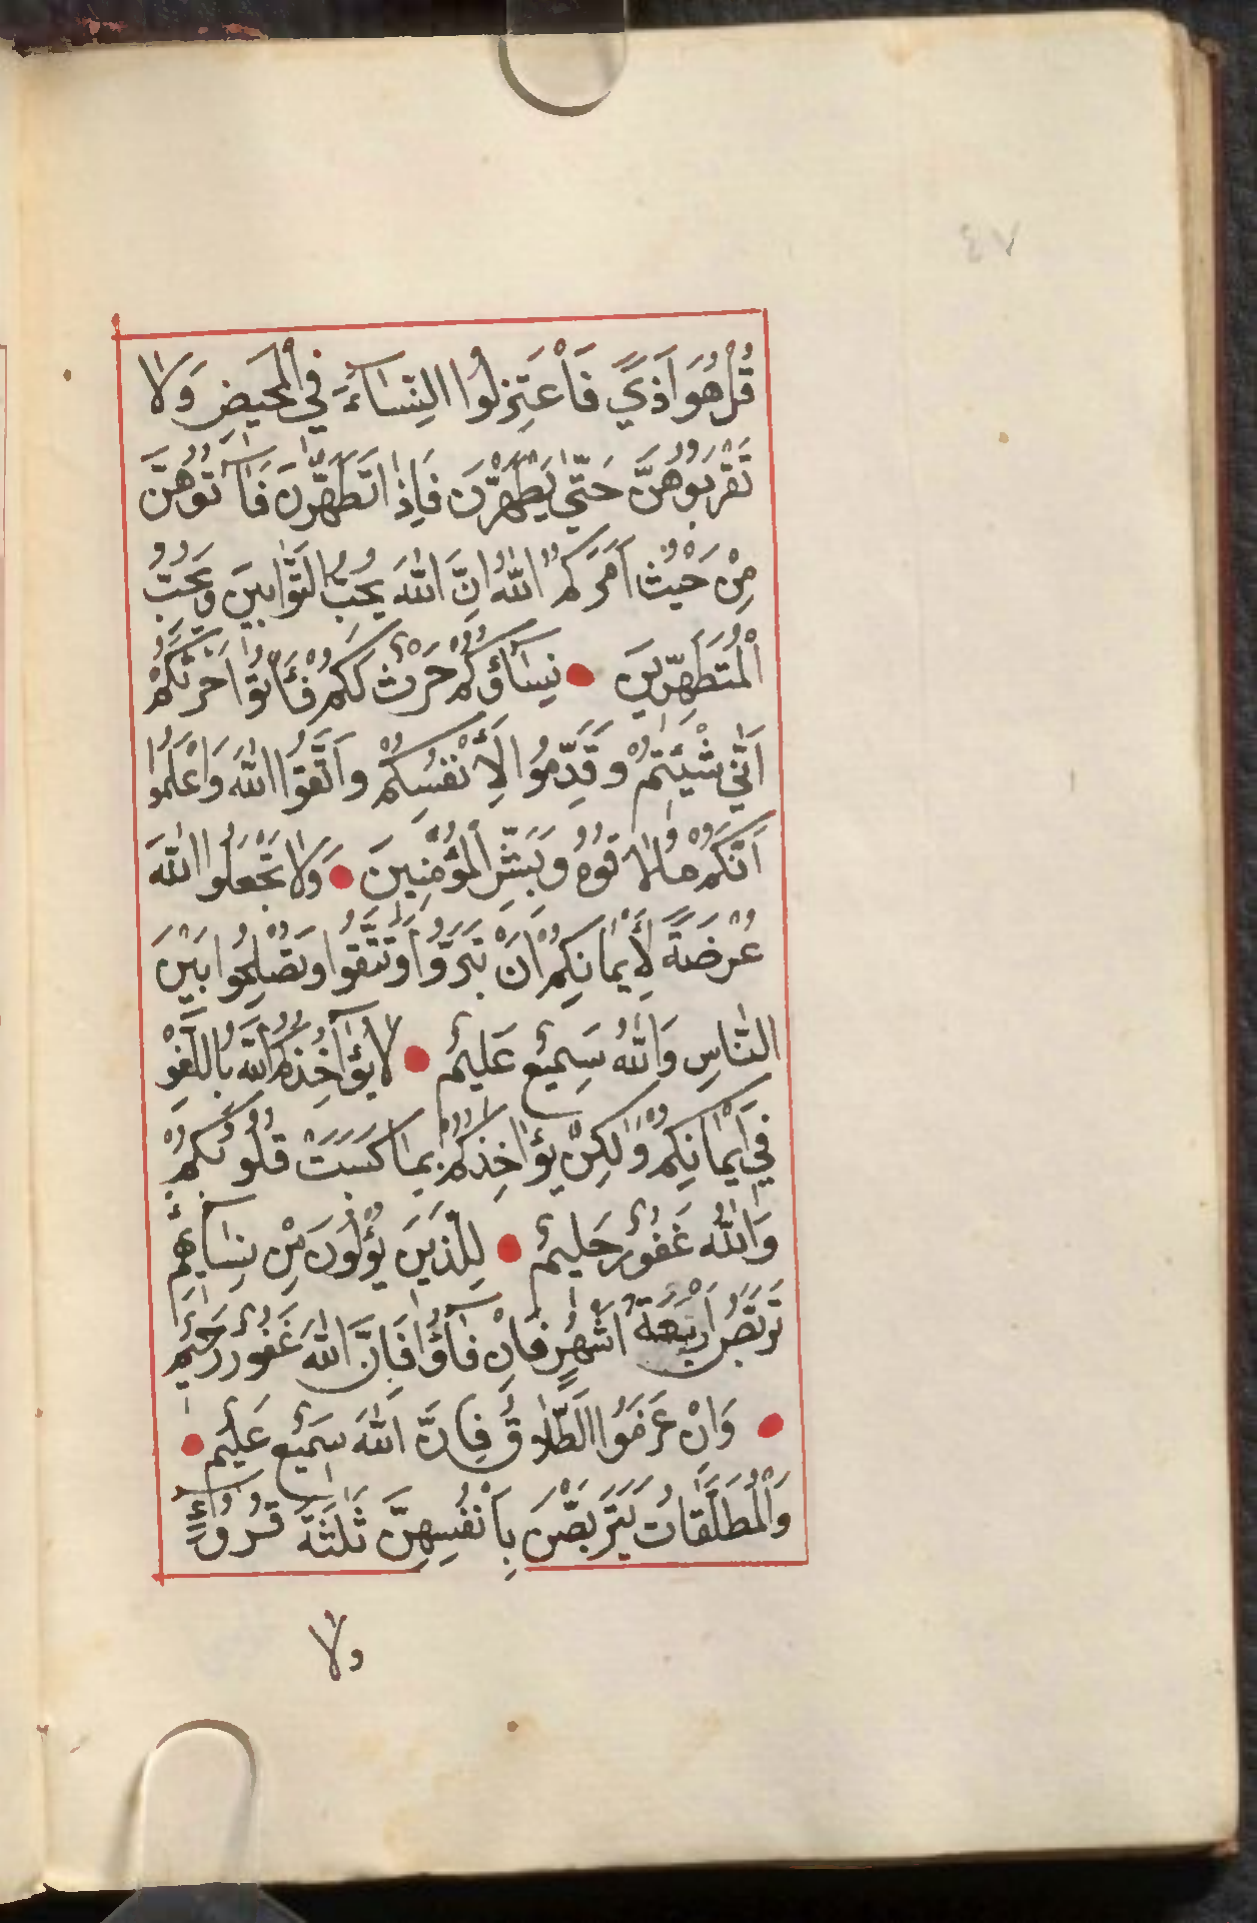 ٤٧
قُلْ هُوَ اَذًي فَاْعْتَزِلُوا النِّسَآءَ فِي الْمَحِيضِ وَلَا
تَقْرَبُوهُنَّ حَتّٰي يَطْهُرْنَ فَاِذَا تَطَهَّرْنَ فَاْتُوهُنَّ
مِنْ حَيْثُ اَمَرَكُمُ اللّٰهُ اِنَّ اللّٰهَ يُحِبُّ التَّوَّابِينَ وَيُحِبُّ
الْمُتَطَهِّرِينَ ● نِسَآؤُكُمْ حَرْثٌ لَكُمْ فَأْتُوا حَرْثَكُمْ
اَنّٰي شِئْتُمْ وَقَدِّمُوا لِأَنْفُسِكُمْ وَاتَّقُوا اللّٰهَ وَاعْلَمُوا
اَنَّكُمْ مُلَاقُوهُ وَبَشِّرِ الْمُؤْمِنِينَ ● وَلَا تَجْعَلُوا اللّٰهَ
عُرْضَةً لِأَيْمَانِكُمْ اَنْ تَبَرُّوا وَتَتَّقُوا وَتُصْلِحُوا بَيْنَ
النَّاسِ وَاللّٰهُ سَمِيعٌ عَلِيمٌ ● لَا يُؤَاخِذُكُمُ اللّٰهُ بِاللَّغْوِ
فِي اَيْمَانِكُمْ وَلٰكِنْ يُؤَاخِذُكُمْ بِمَا كَسَبَتْ قُلُوبُكُمْ
وَاللّٰهُ غَفُورٌ حَلِيمٌ ● لِلَّذِينَ يُؤْلُونَ مِنْ نِسَآئِهِمْ
تَرَبُّصُ اَرْبَعَةِ اَشْهُرٍ فَاِنْ فَآؤُا فَاِنَّ اللّٰهَ غَفُورٌ رَحِيمٌ
● وَاِنْ عَزَمُوا الطَّلَاقَ فَاِنَّ اللّٰهَ سَمِيعٌ عَلِيمٌ ●
وَالْمُطَلَّقَاتُ يَتَرَبَّصْنَ بِاَنْفُسِهِنَّ ثَلٰثَةَ قُرُوءٍ
ولا